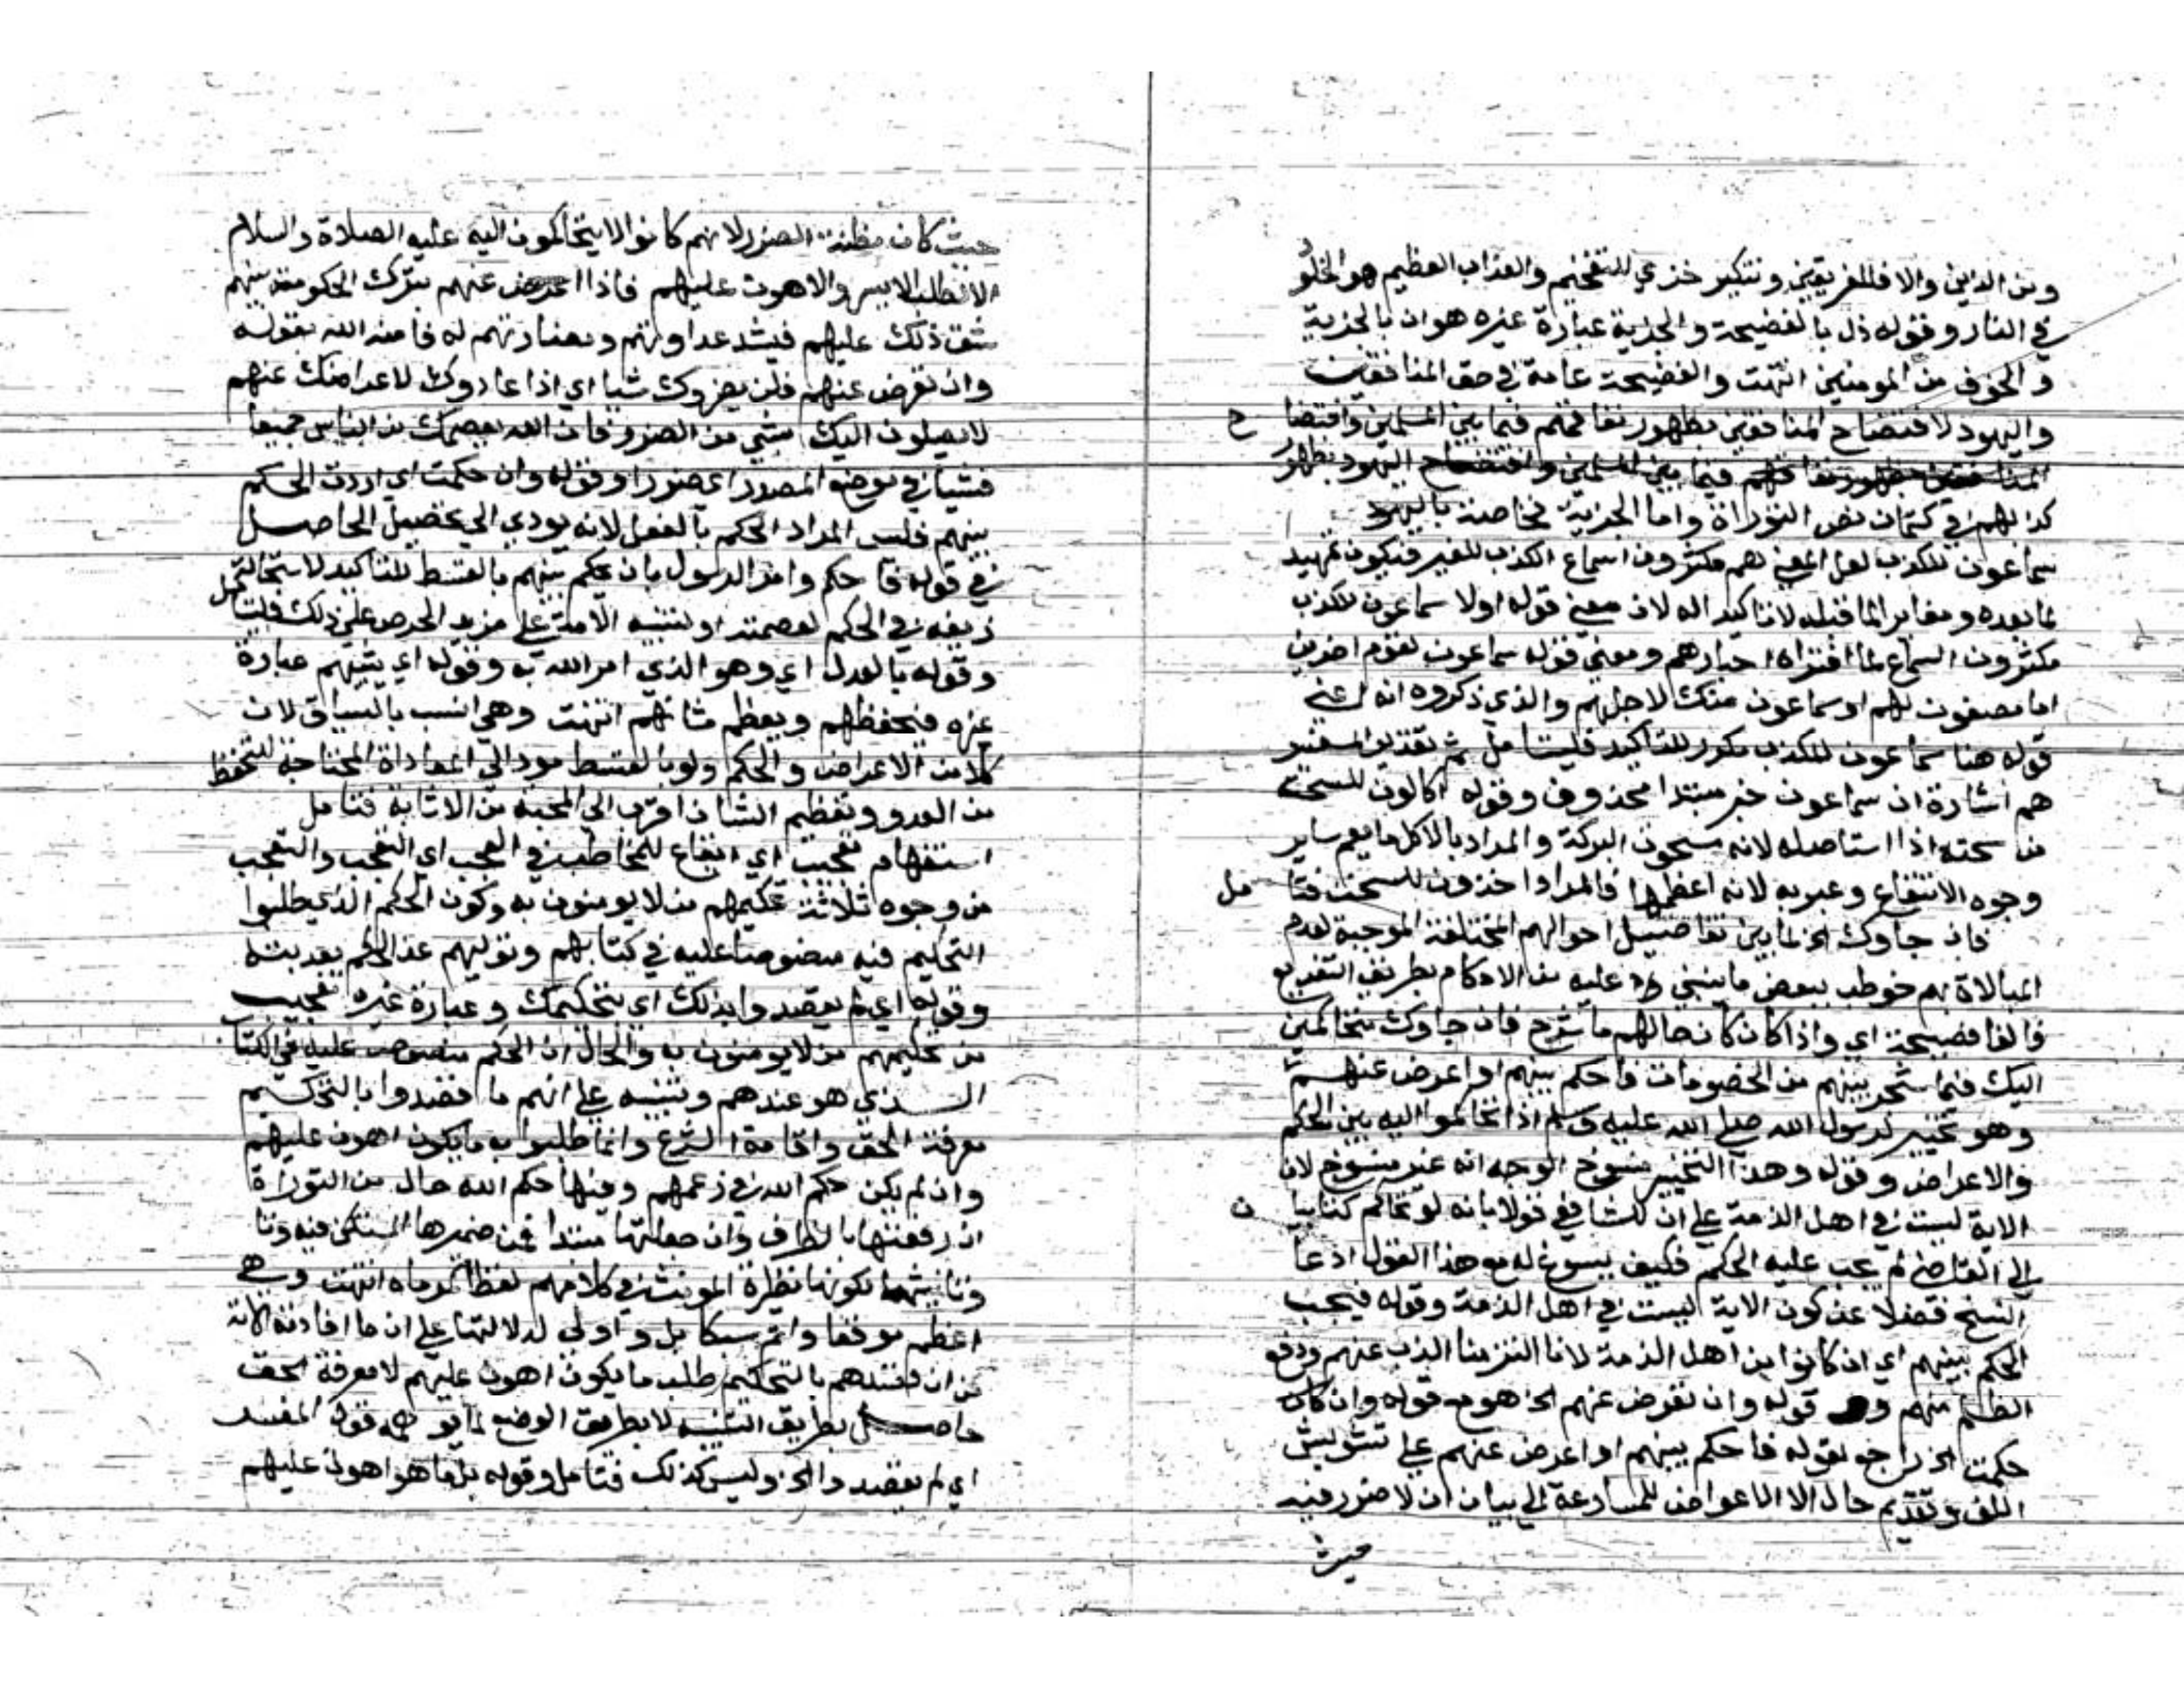 ومن الذين والا فللفريقين وتنكير خزي للتفخيم والعذاب العظيم هو الخلو
في النار وقوله ذل بالفضيحة والجزية عبارة غيره هوان بالجزية
والخوف من المومنين انتهت والفضيحة عامة في حق المنافقين
واليهود لافتضاح المنافقين بظهور نفاقهم فيما بين المسلمين وافتضا ح
المنافقين بظهور نفاقهم فيما بين المسلمين وافتضاح اليهود بظهور
كذبهم في كتمان نص التوراة واما الجزية فخاصة باليهود
سماعون للكذب لعل المعنى هم مكثرون اسماع الكذب للغير فيكون تمهيد
لما بعده ومغاير الما قبله لا تاكيد اله لان معنى قوله اولا سماعون للكذب
مكثرون السماع لما افتراه احبارهم ومعنى قوله سماعون لقوم اخرين
اما مصغون لهم او سماعون منك لاجلهم والذي ذكروه انه اعني
قوله هنا سماعون للكذب مكرر للتاكيد فليتامل ثم تقدير المفسر
هم اشارة ان سماعون خبر مبتدا محذوف وقوله اكالون للسحت
من سحته اذا استاصله لانه مسحوت البركة والمراد بالاكل ما يعم ساير
وجوه الانتفاع وعبر به لانه اعظمها فالمراد اخذون للسحت فتا مل
فان جاوك الخ لما بين تفاصيل احوالهم المختلفة الموجبة لعدم
المبالاة بهم خوطب ببعض ما ينبني عليه من الاحكام بطريق التفريع
فالفا فصيحة اي واذا كان كان حالهم ما شرح فان جاوك متحاكمين
اليك فيما شجر بينهم من الخصومات فاحكم بينهم او اعرض عنهم
وهو تخيير لرسول الله صلى الله عليه وسلم اذا تحاكموا اليه بين الحكم
والاعراض وقوله وهذا التخيير منسوخ الوجه انه غير منسوخ لان
الاية ليست في اهل الذمة على ان للشافعي قولا بانه لو تحاكم كتابيا ن
الى القاضي لم يجب عليه الحكم فكيف يسوغ له مع هذا القول ادعا
النسخ فضلا عن كون الاية ليست في اهل الذمة وقوله فيجب
الحكم بينهم اي ان كانوا من اهل الذمة لانا التزمنا الذب عنهم ودفع
الظلم منهم قوله وان تعرض عنهم الخ هو مع قوله وان كان
حكمت الخ راجع لقوله فاحكم بينهم او اعرض عنهم على تشويش
اللف وتقديم حال الا الاعراض للمسارعة الى بيان ان لا ضرر فيه
حيث
حيث كان مظنة الضرر لانهم كانوا لا يتحاكمون اليه عليه الصلاة والسلام
الا لطلب الايسر والاهون عليهم فاذا اعرض عنهم بترك الحكومة بينهم
شق ذلك عليهم فيشد عداوتهم ومضادتهم له فامنه الله بقوله
وان تعرض عنهم فلن يضروك شيا اي اذا عادوك لاعراضك عنهم
لا يصلون اليك بشي من الضرر فان الله يعصمك من الناس جميعا
فشيا في موضع المصدر اي ضررا وقوله وان حكمت اي اردت الحكم
بينهم فليس المراد الحكم بالفعل لانه يودي الى تحصيل الحاصل
في قوله فاحكم وامر الرسول بان يحكم بينهم بالقسط للتاكيد لاستحالة
زيغه في الحكم لعصمته او لتنبيه الامة على مزيد الحرص على ذلك فليتامل
وقوله بالعدل اي وهو الذي امر الله به وقوله اي يثيبهم عبارة
غيره فيحفظهم ويعظم شانهم انتهت وهي انسب بالسياق لان
كلا من الاعراض والحكم ولو بالقسط مود الى المعاداة المحتاجة للتحفظ
من العدو وتعظيم الشان اقرب الى المحبة من الاثابة فتامل
استفهام تعجيب اي ايقاع للمخاطب في العجب اي التعجب والتعجب
من وجوه ثلاثة تحكيمهم من لا يومنون به وكون الحكم الذي طلبوا
التحكيم فيه منصوصا عليه في كتابهم وتوليهم عن الحكم بعد بته
وقوله اي لم يقصدوا بذلك اي بتحكيمك وعبارة غيره تعجيب
من تحكيمهم من لا يومنون به والحال ان الحكم منصوص عليه في الكتاب
الذي هو عندهم وتنبيه على انهم ما قصدوا بالتحكيم
معرفة الحق واقامة الشرع وانما طلبوا به ما يكون اهون عليهم
وان لم يكن حكم الله في زعمهم وفيها حكم الله حال من التوراة
ان رفعتها بالظرف وان جعلتها مبتدا فمن ضميرها المستكن فيه وتا
وتانيثها لكونها نظيرة المونث في كلامهم لفظا كموماه انتهت وهي
اعظم موقعا واتم سبكا بل و اولى لدلالتها على ان ما افادته الاية
من ان قصدهم بالتحكيم طلب ما يكون اهون عليهم لا معرفة الحق
حاصل بطريق التنبيه لا بطريق الوضع لما يوهمه قول المفسر
اي لم يقصدوا الخ وليس كذلك فتامل وقوله بل ما هو اهون عليهم